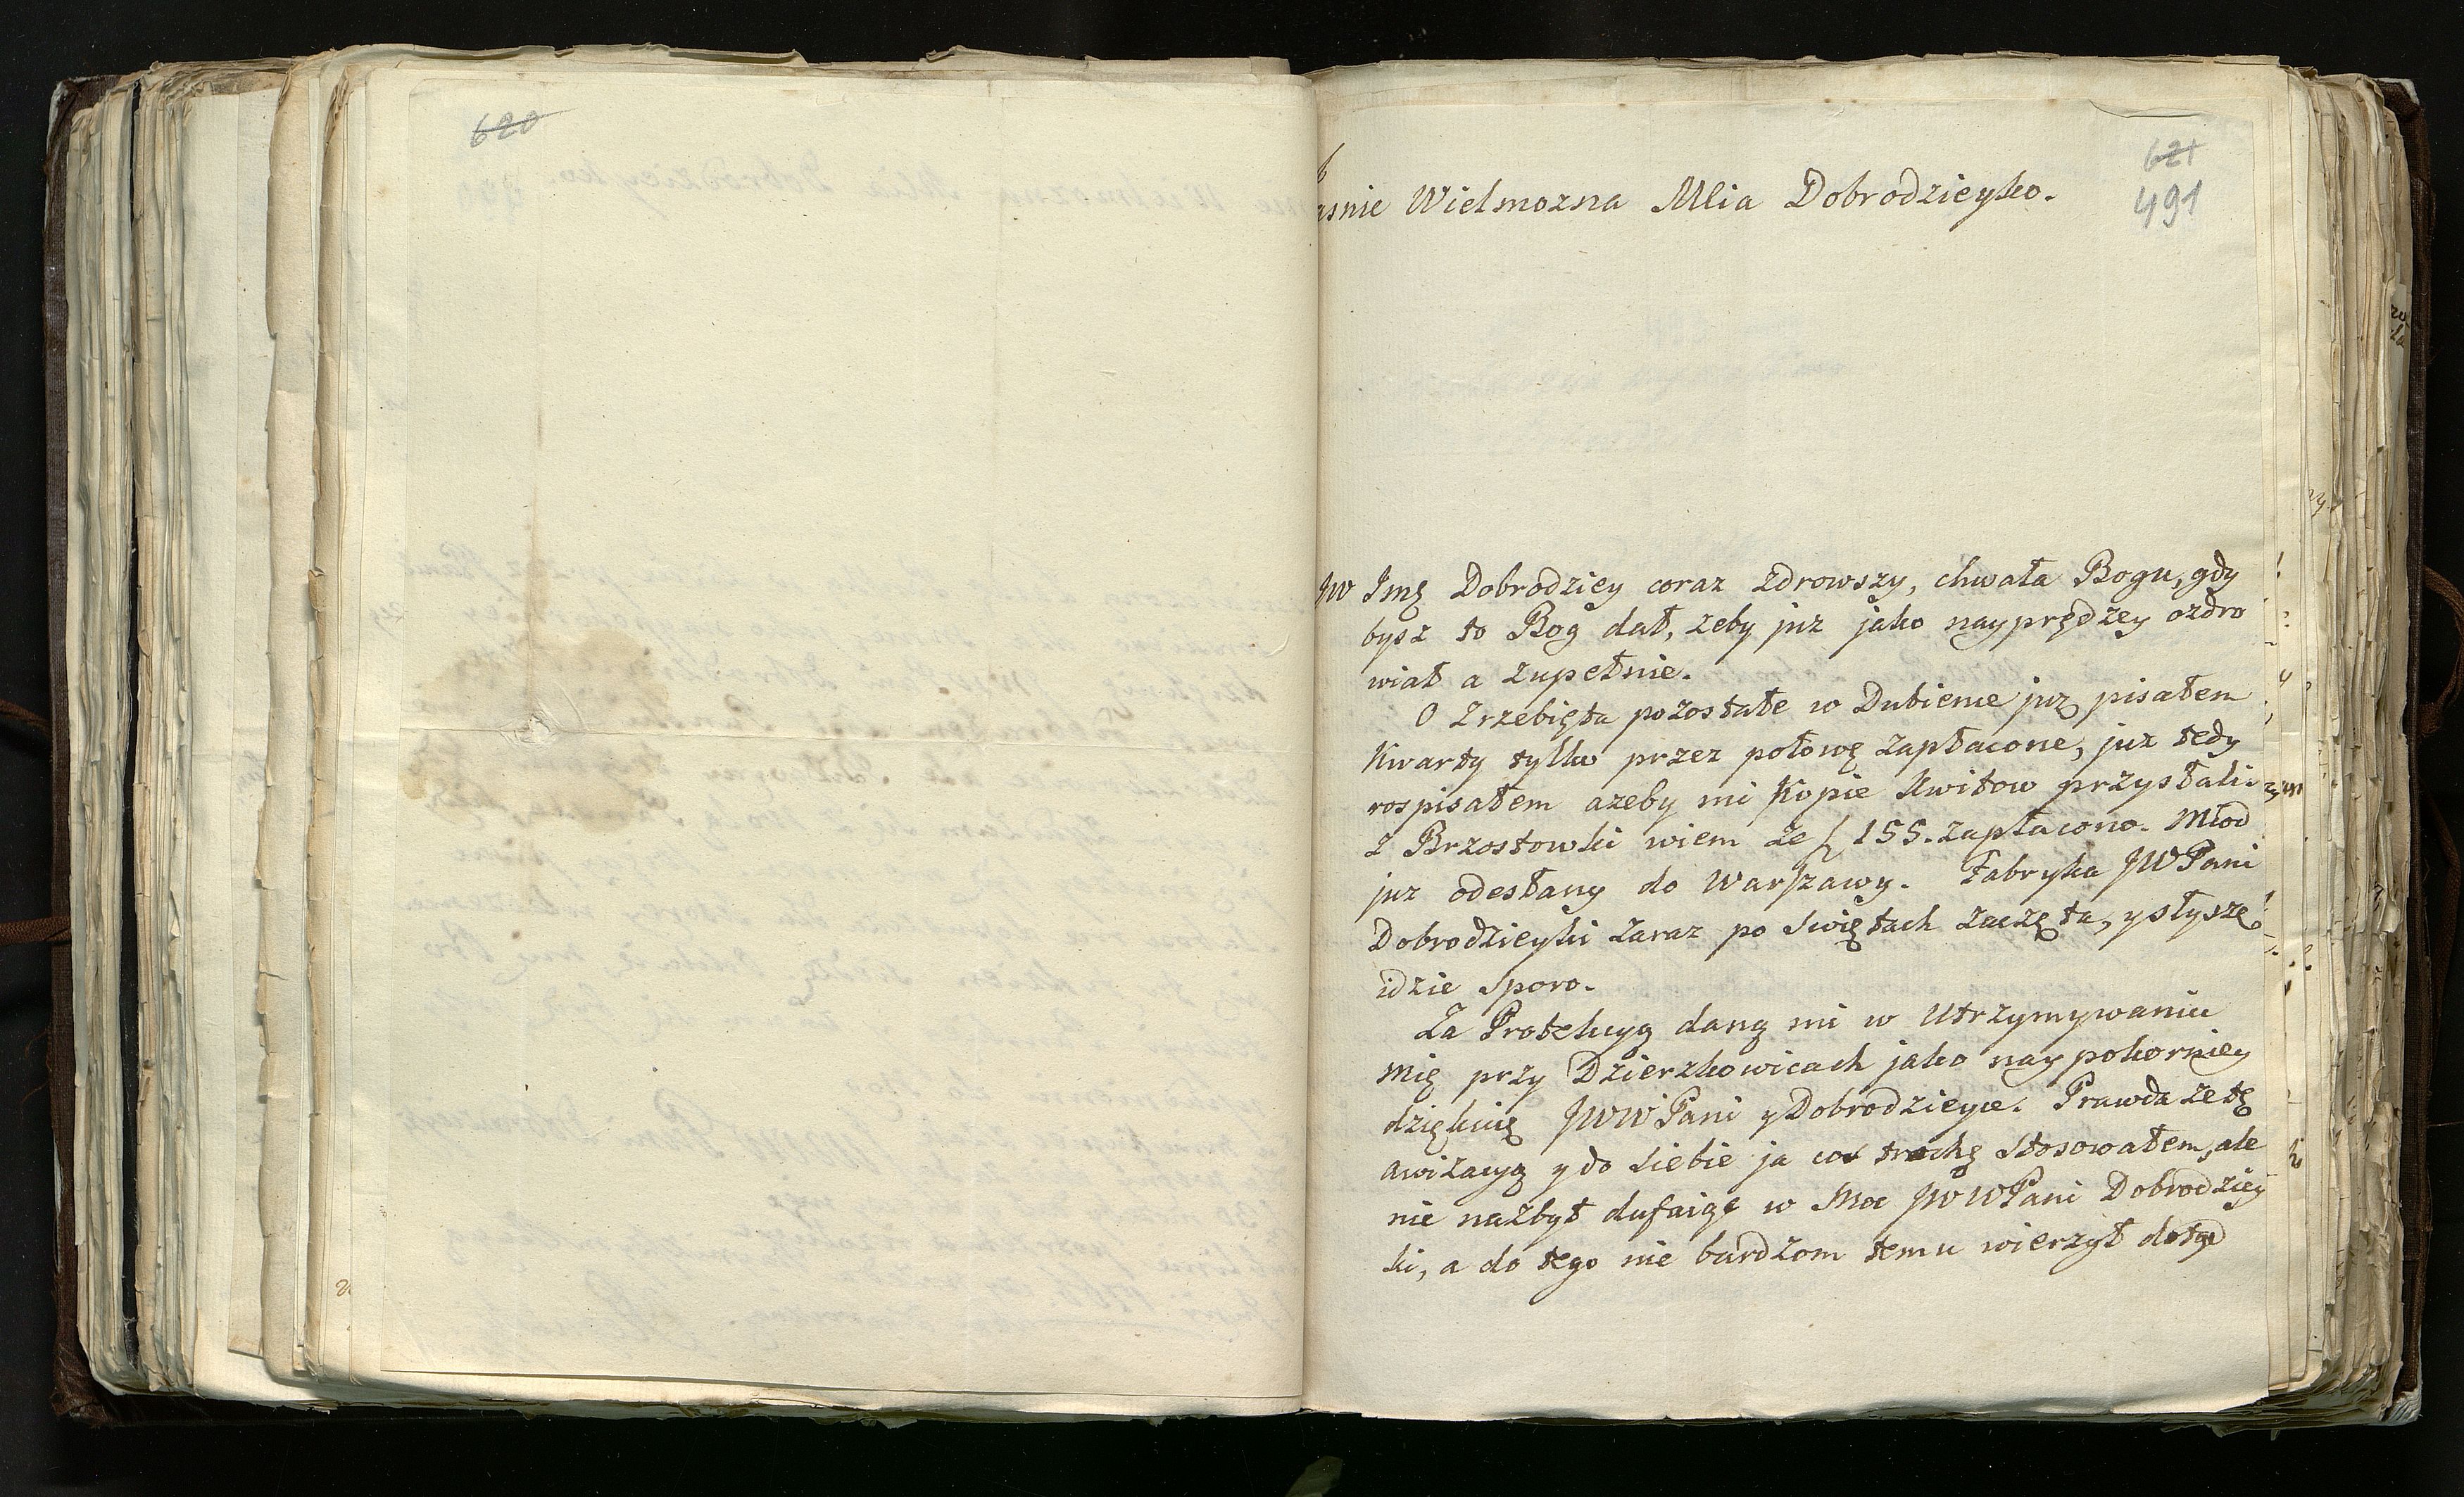 620
621
491
asnie Wielmozna Mia Dobrodzieyko.
JW Jmę Dobrodziey coraz zdrowszy, chwała Bogu, gdy
bysz to Bog dał, zeby juz jako nayprędzey ozdro
wiał a zupełnie.
O zrzebięta pozostałe w Dubience juz pisałem
Kwarty tylko przez połowę zapłacone, juz tedy
rospisałem azeby mi Kopie Kwitow przysłali.
z Brzostowki wiem ze f 155. zapłacono. Miod
juz odesłany do Warszawy. Fabryka JWPani
Dobrodzieyki zaraz po swiętach zaczęta, y słyszę
idzie sporo.
Za Protekcyą daną mi w Utrzymywaniu
mię przy Dzierzkowicach jako naypokorniey
dziękuię JWWPani y Dobrodzieyce. Prawda ze tę
awizacyą y do siebie ja cos trochę stosowałem, ale
nie nazbyt dufaiąc w Moc JWWPani Dobrodziey
ki, a do tego nie bardzom temu wierzył dotąd